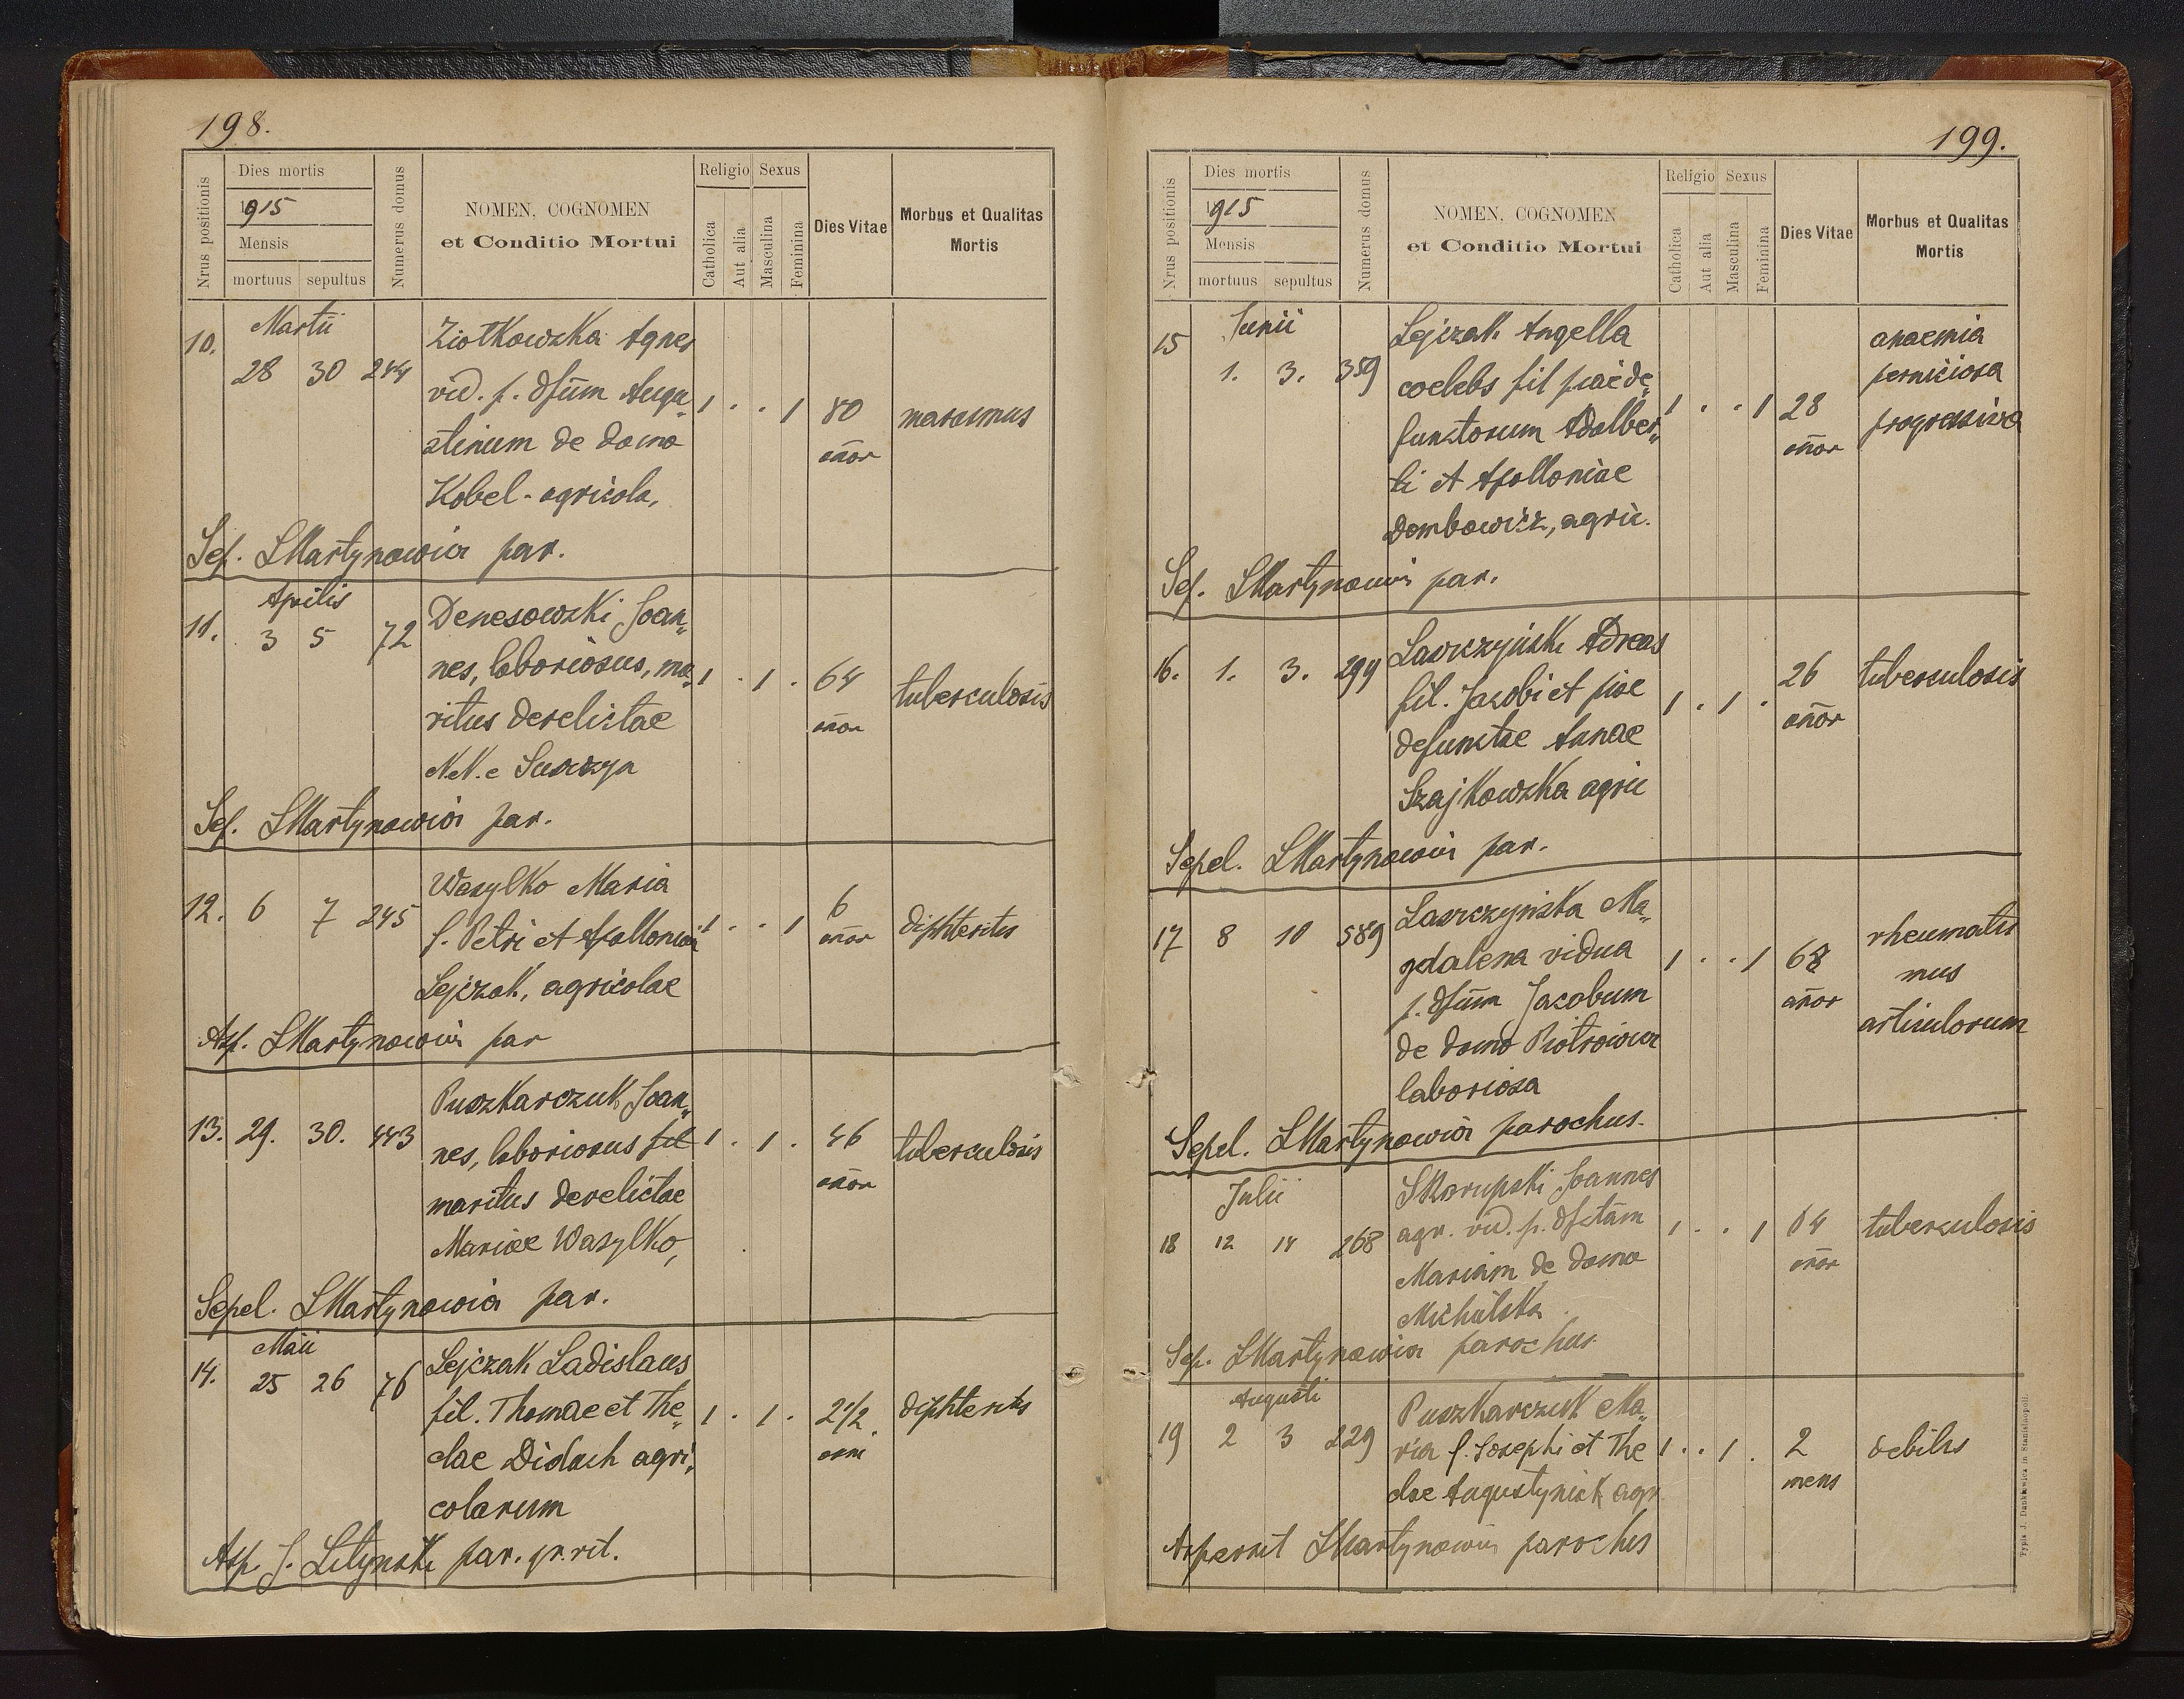 198.
Nrus positionis
Dies mortis
1915
Mensis
mortuus sepultus
Numerus domus
NOMEN, COGNOMEN
et Conditio Mortui
Religio Sexus
Catholica
Aut alia
Masculina
Feminina
Dies Vitae
Morbus et Qualitas
Mortis
Martii
10. 28 30 244
Ziołkowska Agnes
vid. p. dfūm Augu„
stinum de domo
Kobel - agricola,
1 . . 1
80
añor
marasmus
Sep. LMartynowicz par.
Aprilis
11. 3 5 72
Denesowski Joan„
nes, laboriosus, ma„
ritus derelictae
N.N. e
1 . 1 .
64
añor
tuberculosis
Sep. LMartynowicz par.
12. 6 7 245
Wasylko Maria
f. Petri et Apolloniae
Lejczak, agricolae
1 . . 1
6
añor
diphteritis
Asp. LMartynowicz par
13. 29. 30. 443
Puszkarczuk Joan„
nes, laboriosus fil
maritus derelictae
Mariae Wasylko,
1 . 1 .
46
añor
tuberculosis
Sepel. LMartynowicz par.
Maii
14. 25 26 76
Lejczak Ladislaus
fil. Thomae et The„
clae Didach agri„
colarum
1 . 1 .
2 1/2
anni
diphteritis
Asp. J. Litynski par. gr. rit.
199.
Nrus positionis
Dies mortis
1915
Mensis
mortuus sepultus
Numerus domus
NOMEN, COGNOMEN
et Conditio Mortui
Religio Sexus
Catholica
Aut alia
Masculina
Feminina
Dies Vitae
Morbus et Qualitas
Mortis
Junii
15 1. 3. 359
Lejczak Angella
coelebs fil piae de„
functorum Adalber„
ti et Apolloniae
Dombowicz, agric.
1 . . 1
28
añor
anaemia
perniciosa
progressiva
Sep. LMartynowicz par.
16. 1. 3. 299
Lawrzyński Adreas
fil. Jacobi et piae
defunctae Annae
Szajkowska agric
1 . 1 .
26
añor
tuberculosis
Sepel. LMartynowicz par.
17 8 10 589
Lawrczyńska Ma„
gdalena vidua
p. dfūm Jacobum
de domo Piotrowicz
laboriosa
1 . . 1
68
añor
rheumatis
mus
articulorum
Sepel. LMartynowicz parochus.
Julii
18 12 14 268
Skarupski Joannes
agr. vid. p. dfctām
Mariam de domo
Michalska
1 . . 1
64
añor
tuberculosis
Sep. LMartynowicz parochus
Augusti
19 2 3 229
Puszkarczuk Ma„
ria f. Josephi et The
clae Augustyniak agr
1 . . 1 .
2
mens
debilis
Aspersit LMartynowicz parochus
Typis J. Dankiewicz in Stanislaopoli.